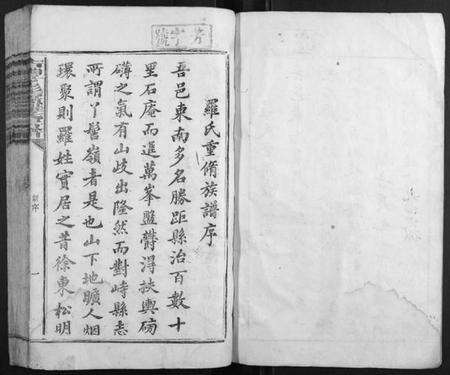 羅氏重脩族譜序
吾邑東南多名勝距縣治百數十
里石庵而進萬峯盤欝淂扶輿磅
礴之氣有山歧出隆然而對峙縣志
所謂丫髻嶺者是也山下地曠人烟
環聚則羅姓實居之昔徐東松明
序
一